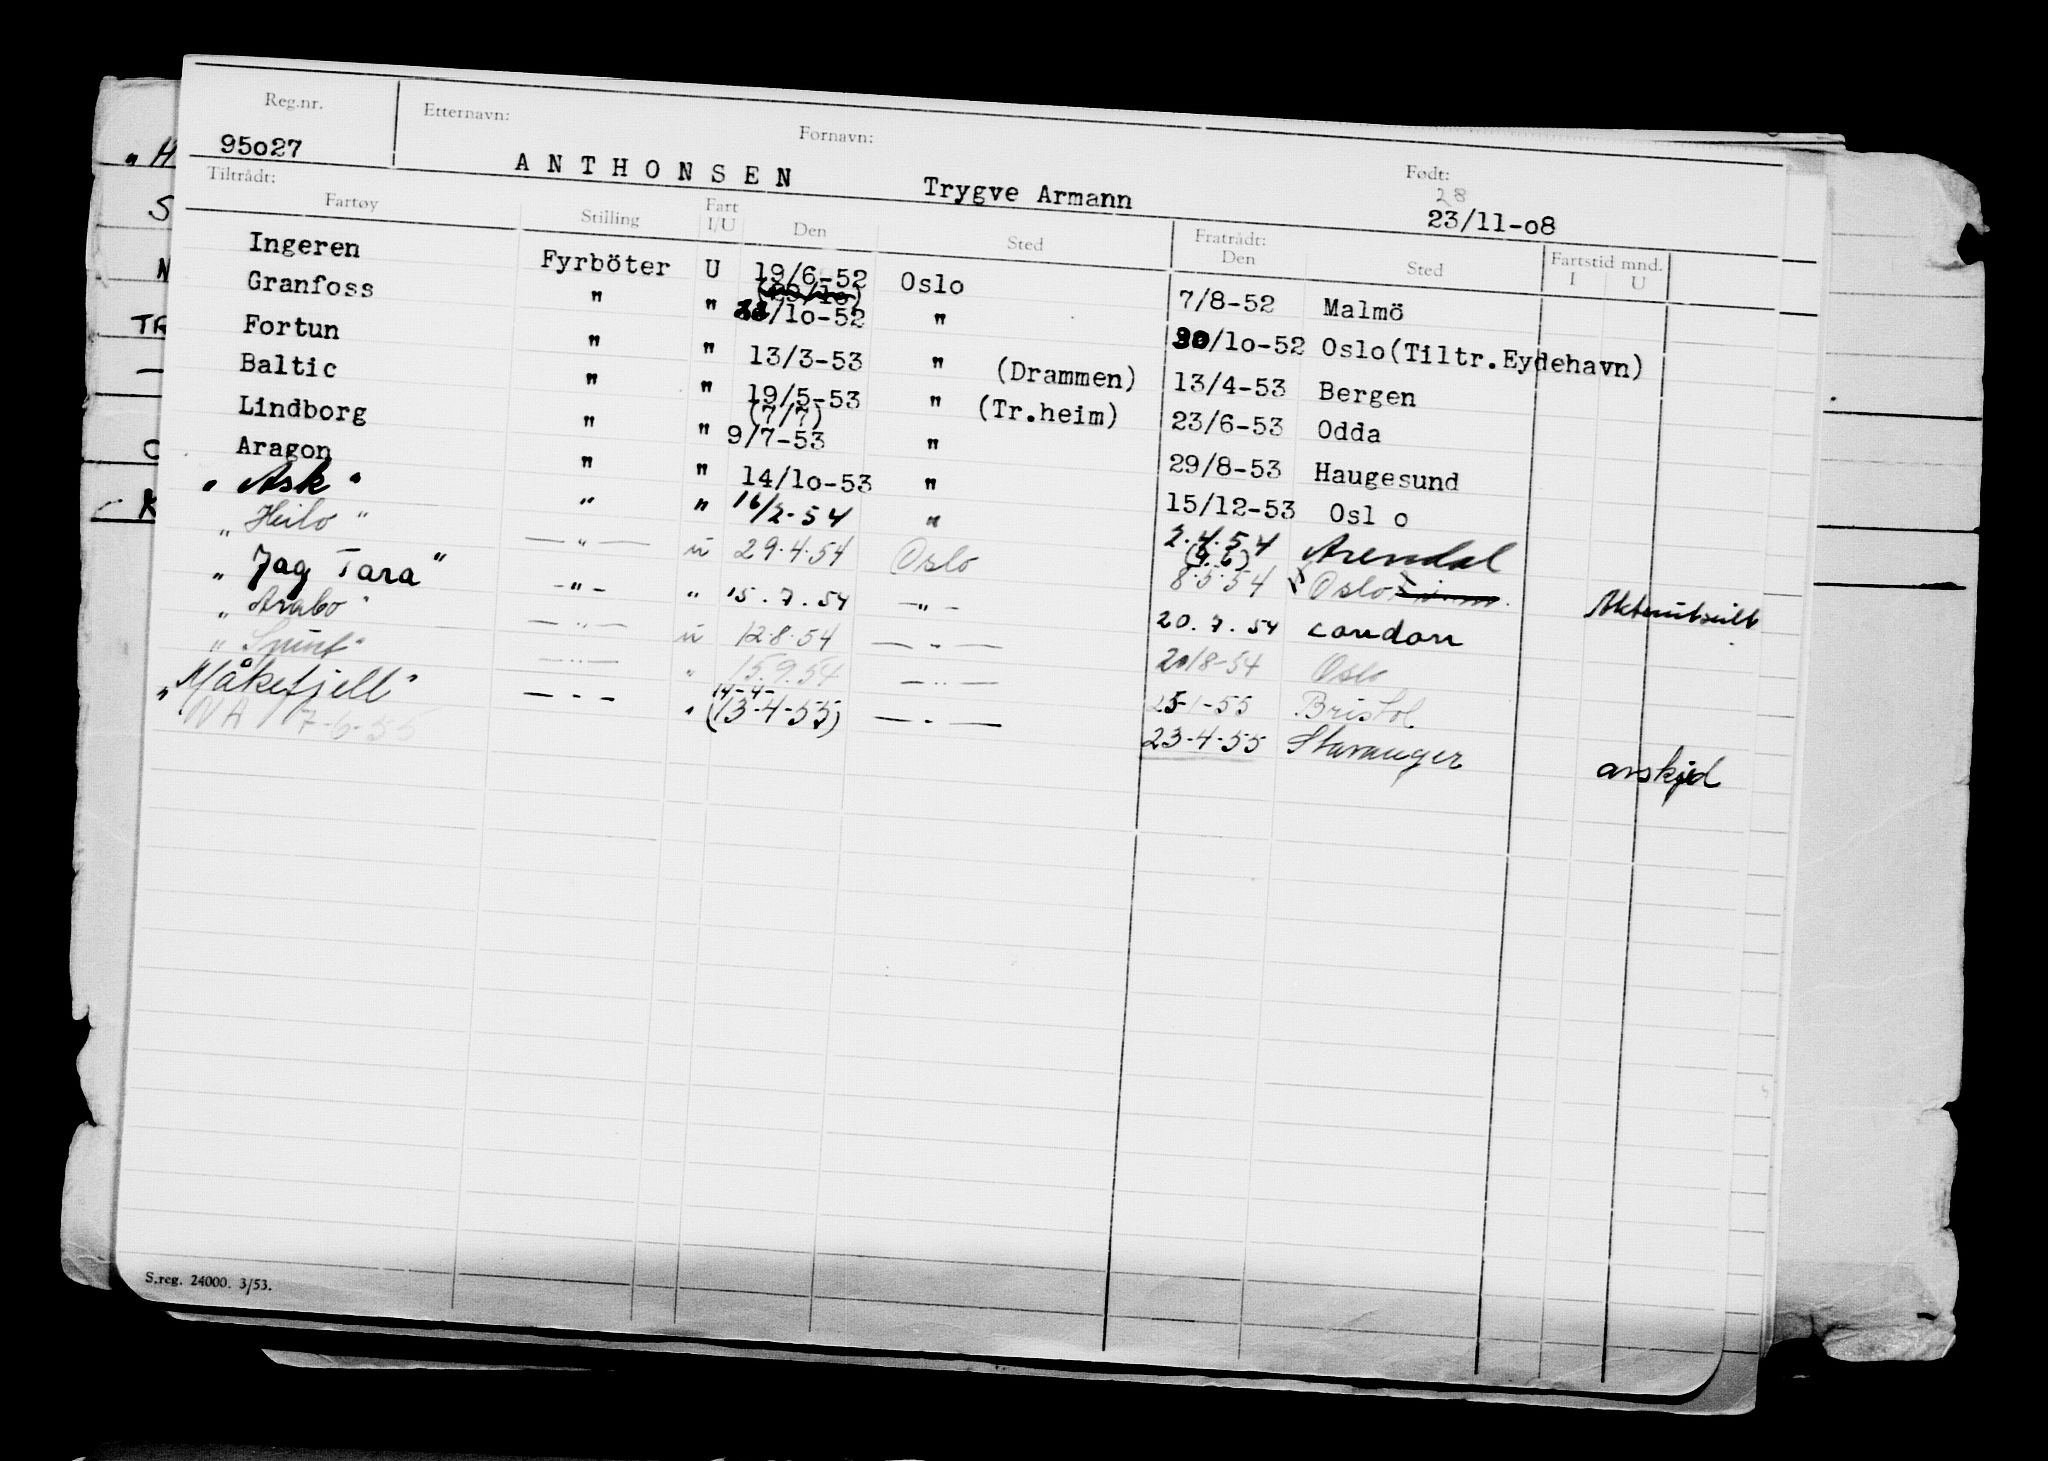 Reg.nr. Etternavn: Fornavn: Født:
95o27 ANTHONSEN Trygve Armann 28 23/11-o8
Tiltrådt: Fratrådt:
Fartøy Stilling Fart I/U Den Sted Den Sted Fartstid mnd. I U
Ingeren Fyrböter U 19/6-52 Oslo 7/8-52 Malmö
Granfoss " " /1o-52 " 30/1o-52 Oslo(Tiltr.Eydehavn)
Fortun " " 13/3-53 " (Drammen) 13/4-53 Bergen
Baltic " " 19/5-53 " (Tr.heim) 23/6-53 Odda
Lindborg " " (7/7) 9/7-53 " 29/8-53 Haugesund
Aragon " " 14/1o-53 " 15/12-53 Osl o
"Ask" " " 16/2-54 " 2.4.54 Arendal
"Heilo" —"— u 29.4.54 Oslo (4.6) 8.5.54 Oslo
"Jag Tara" -"- " 15.7.54 -"- 20.7.54 London
"Arabo" —"— u 12.8.54 —"— 20/8-54 Oslo
"Spint" —"— " 15.9.54 —"— 25-1-55 Bristol
"Måkefjell" —"— " 14-4- (13-4-55) —"— 23-4-55 Stavanger avskjed
NA 17-6-55
S.reg. 24000. 3/53.